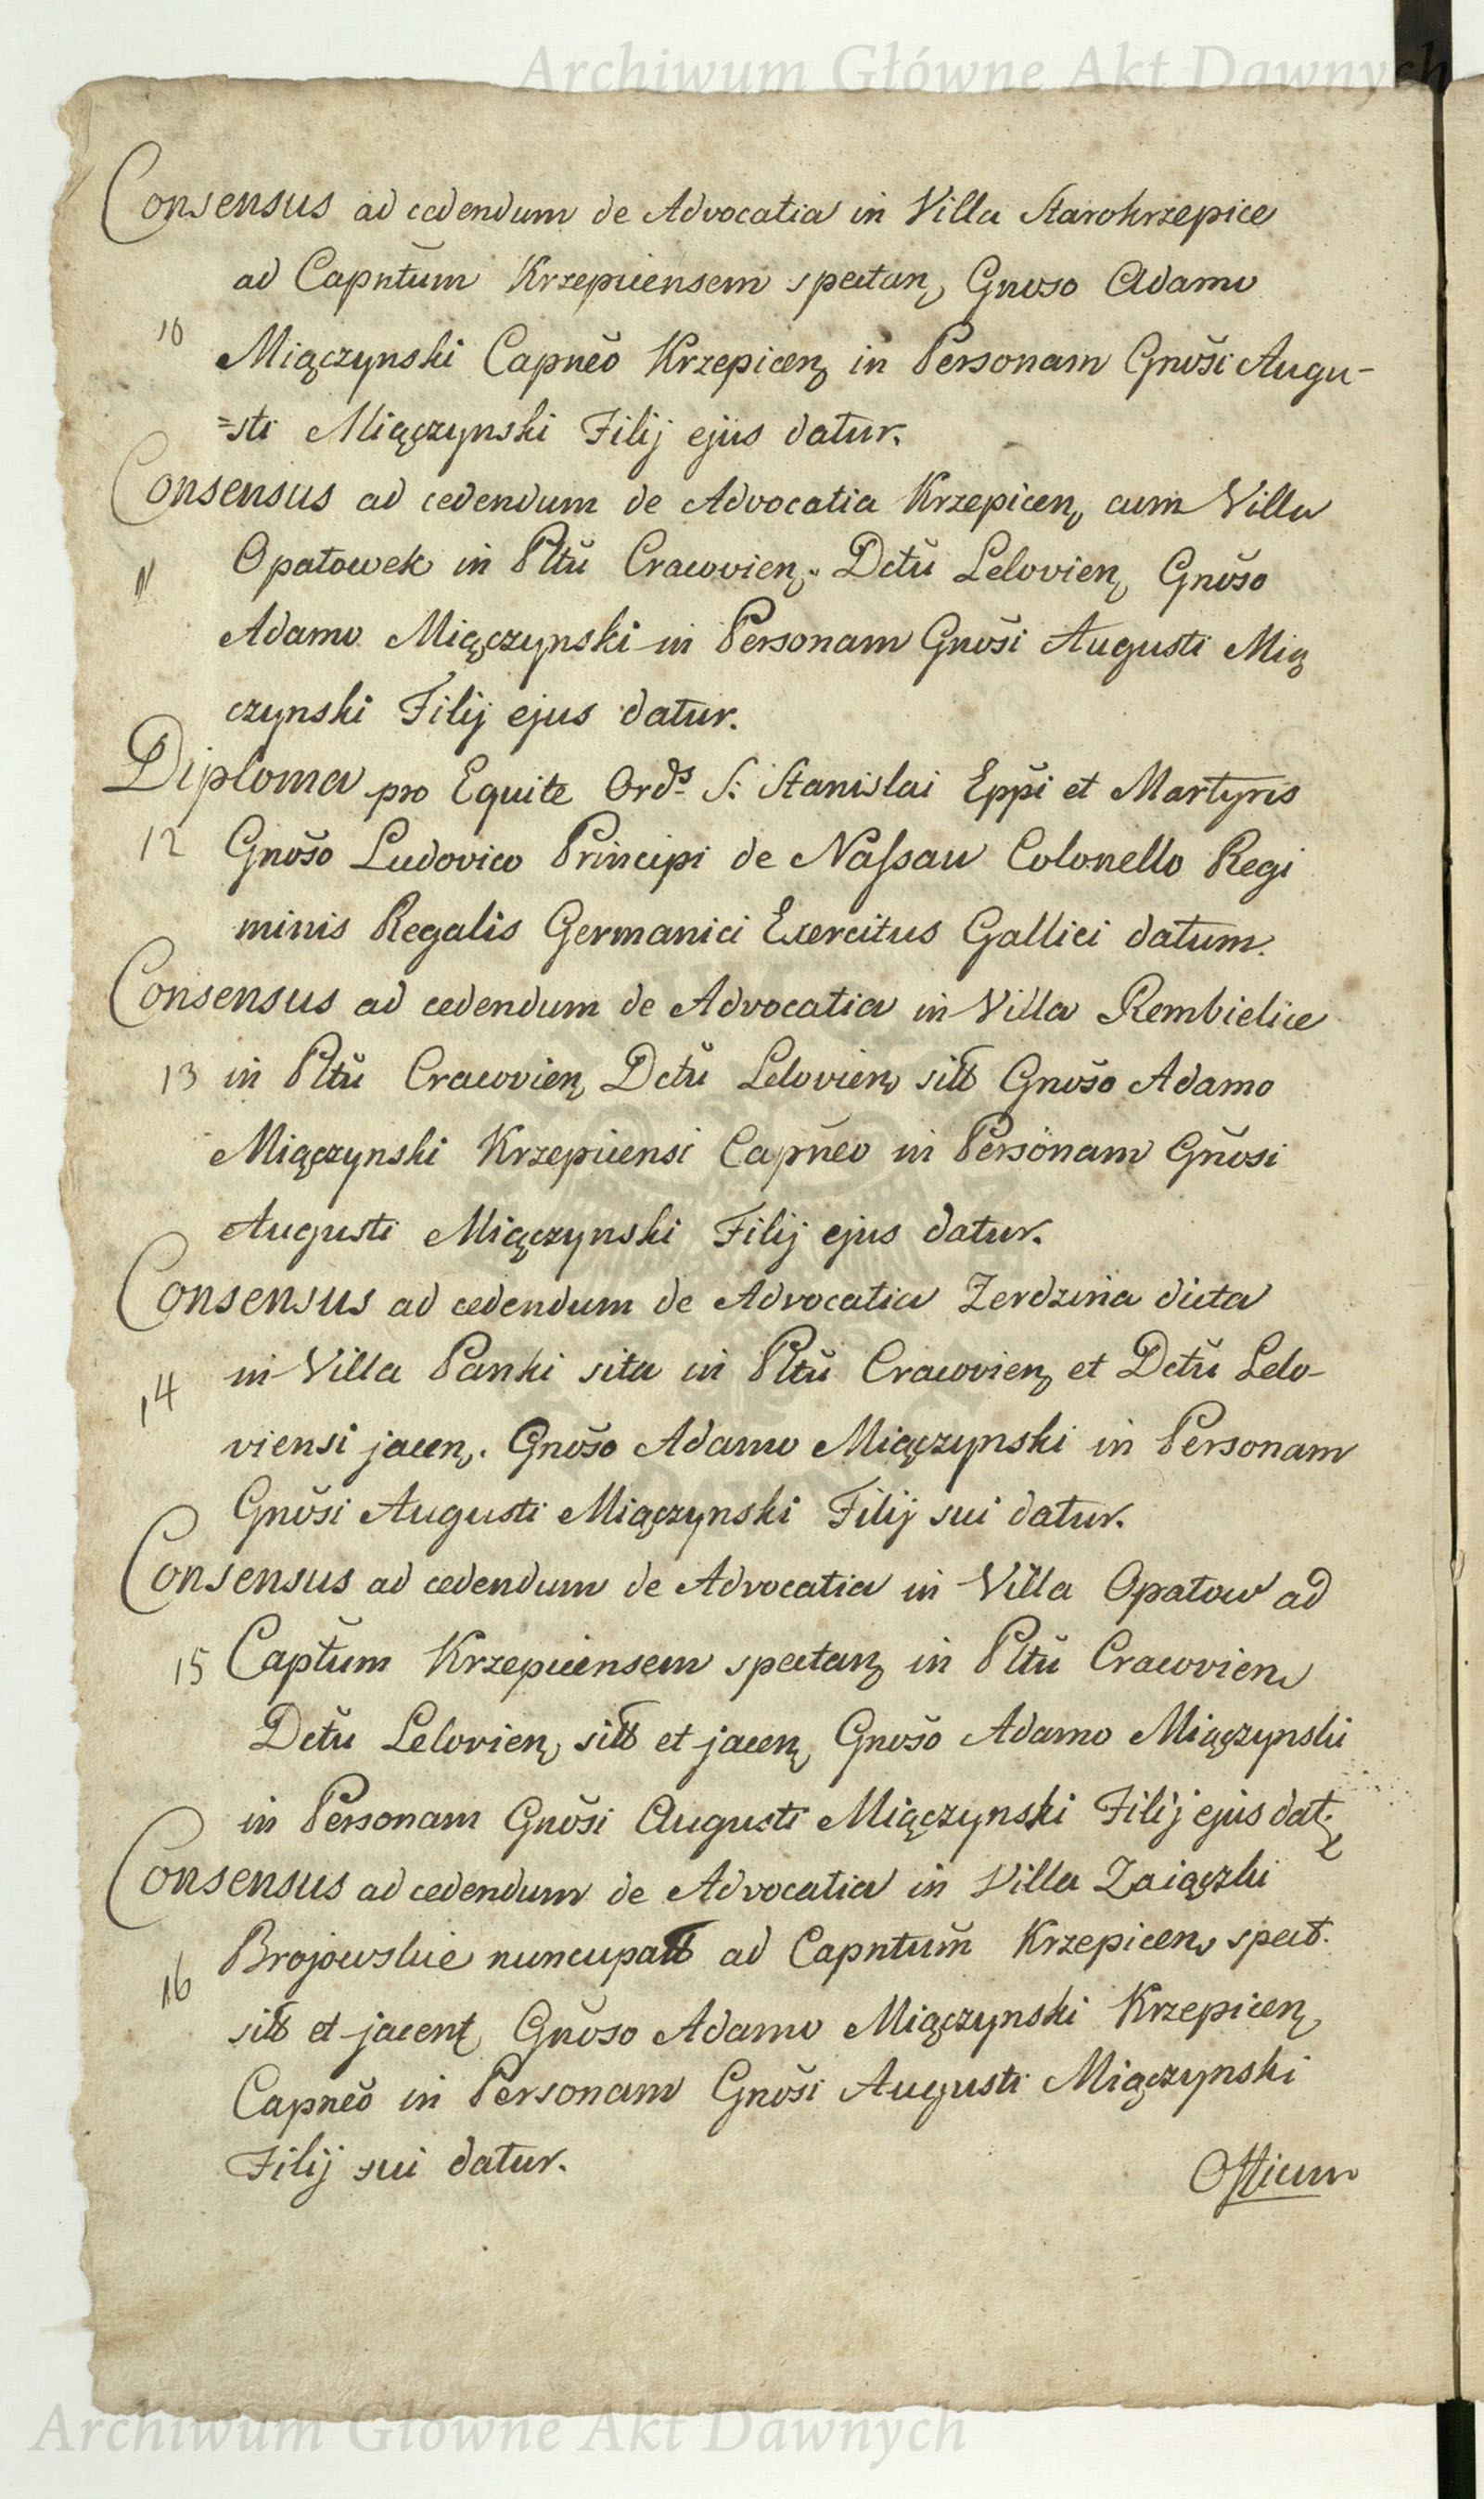 Archiwum Główne Akt Dawnych
Consensus ad cedendum de Advocatia in Villa Starokrzepice
ad Capntum Krzepicensem spectan, Gnoso Adamo
10 Miączynski Capneo Krzepicen, in Personam Gnosi Augu-
=sti Miączynski Filij ejus datur.
Consensus ad cedendum de Advocatia Krzepicen, cum Villa
11 Opatowek in Pltũ Cracovien. Dctũ Lelovien, Gnoso
Adamo Miączynski in Personam Gnosi Augusti Mią
czynski Filij ejus datur.
Diploma pro Equite Ordˢ S: Stanislai Eppi et Martyris
12 Gnoso Ludovico Principi de Naſsau Colonello Regi
minis Regalis Germanici Exercitus Gallici datum.
Consensus ad cedendum de Advocatia in Villa Rembielice
13 in Pltũ Cracovien, Dctũ Lelovien, sitt Gnoso Adamo
Miączynski Krzepicensi Capneo in Personam Gnosi
Augusti Miączynski Filij ejus datur.
Consensus ad cedendum de Advocatia Zerdzina dicta
14 in Villa Panki sita in Pltũ Cracovien, et Dctũ Lelo-
viensi jacen,. Gnoso Adamo Miączynski in Personam
Gnosi Augusti Miączynski Filij sui datur.
Consensus ad cedendum de Advocatia in Villa Opatow ad
15 Captum Krzepicensem spectan, in Pltũ Cracovien,
Dctũ Lelovien, sitt et jacen, Gnoso Adamo Miączynski
in Personam Gnosi Augusti Miączynski Filij ejus dat.
Consensus ad cedendum de Advocatia in Villa Zaiączki
16 Brojowskie nuncupatt ad Capntum Krzepicen, spect.
sitt et jacent, Gnoso Adamo Miączynski Krzepicen,
Capneo in Personam Gnosi Augusti Miączynski
Filij sui datur.
Offtium
Archiwum Główne Akt Dawnych